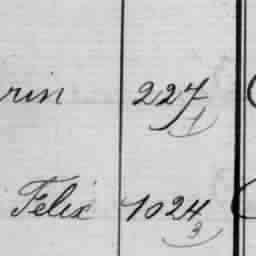 rin 227
1
Felix 1024
3